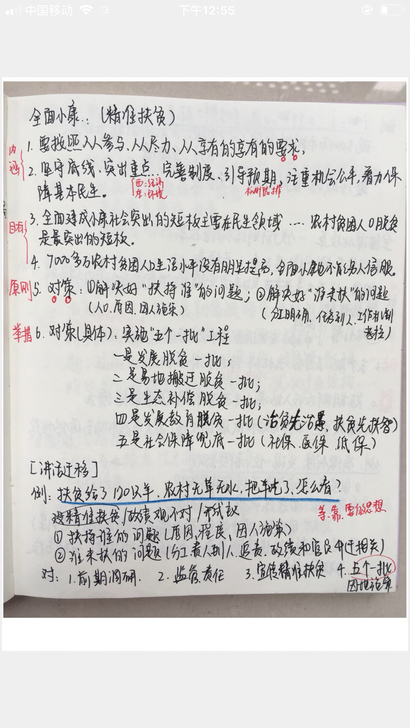 中国移动 下午12:55
全面小康:(精准扶贫)
内涵
1. 要按照人人参与、人人尽力、人人享有的要求,
2. 坚守底线、突出重点、完善制度、引导预期,注重机会公平,着力保
障基本民生。
目标
3. 全面建成小康社会突出的短板主要在民生领域……农村贫困人口脱贫
是最突出的短板。
4. 7000多万农村贫困人口生活水平没有明显提高,全面小康也不能让人信服。
原则
5. 对策:①解决好"扶持谁"的问题;②解决好"谁来扶"的问题
(人口、原因、因人施策)
举措
6. 对策(具体):实施"五个一批"工程
一是发展脱贫一批;
二是易地搬迁脱贫一批;
三是生态补偿脱贫一批;
四是发展教育脱贫一批(治贫先治愚,扶贫先扶智)
五是社会保障兜底一批(社保、医保、低保)
例:扶贫给了1200只羊,农村无草无水,把羊吃了,怎么看?
等、靠、要的思想
①扶持谁的问题(原因、程度、因人施策)
②谁来扶的问题
对:1. 前期调研 2. 监督责任 3. 宣传精准扶贫 4. 五个一批
因地施策